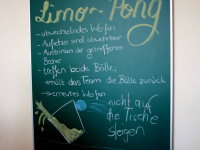 Limo-Pong
- abwechselndes Werfen
- Aufsetzer sind abwehrbar
- Austrinken der getroffenen
Becher
- treffen beide Bälle,
erhält das Team die Bälle zurück
→ erneutes Werfen
nicht auf
die Tische
steigen